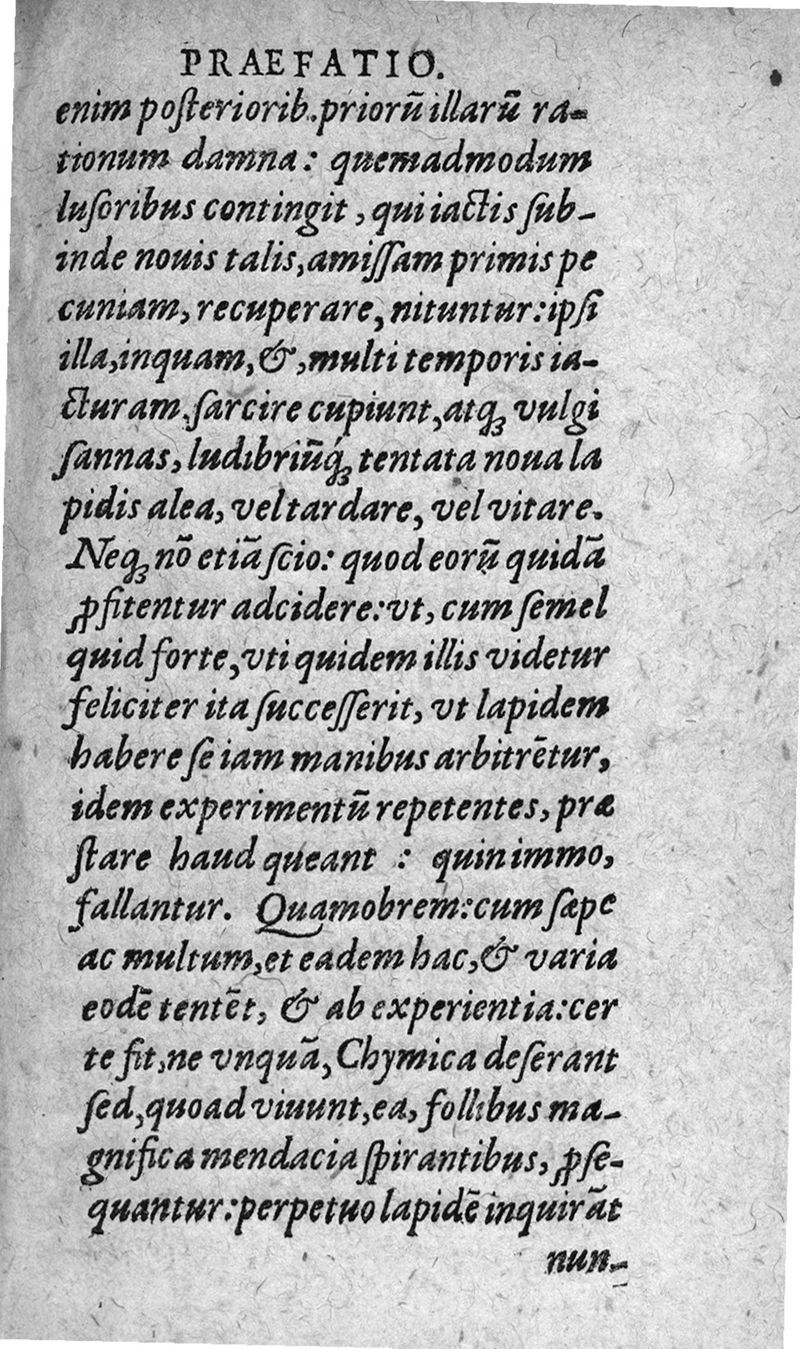 PRAEFATIO.
enim posteriorib. priorū illarū ra-
tionum damna: quemadmodum
lusoribus contingit, qui iactis sub-
inde nouis talis, amissam primis pe
cuniam, recuperare, nituntur: ipsi
illa, inquam, &, multi temporis ia-
cturam, sarcire cupiunt, atqꝫ vulgi
sannas, ludibriūqꝫ́ tentata noua la
pidis alea, vel tardare, vel vitare.
Neqꝫ nō etiā scio: quod eorū quidā
ꝓfitentur adcidere: vt, cum semel
quid forte, vti quidem illis videtur
feliciter ita successerit, vt lapidem
habere se iam manibus arbitrētur,
idem experimentū repetentes, præ
stare haud queant : quinimmo,
fallantur. Quamobrem: cum sæpe
ac multum, et eadem hac, & varia
eodē tentēt, & ab experientia: cer
te fit, ne vnquā, Chymica deserant
sed, quoad viuunt, ea, follibus ma-
gnifica mendacia spirantibus, ꝓse-
quantur: perpetuo lapidē inquirāt
nun-